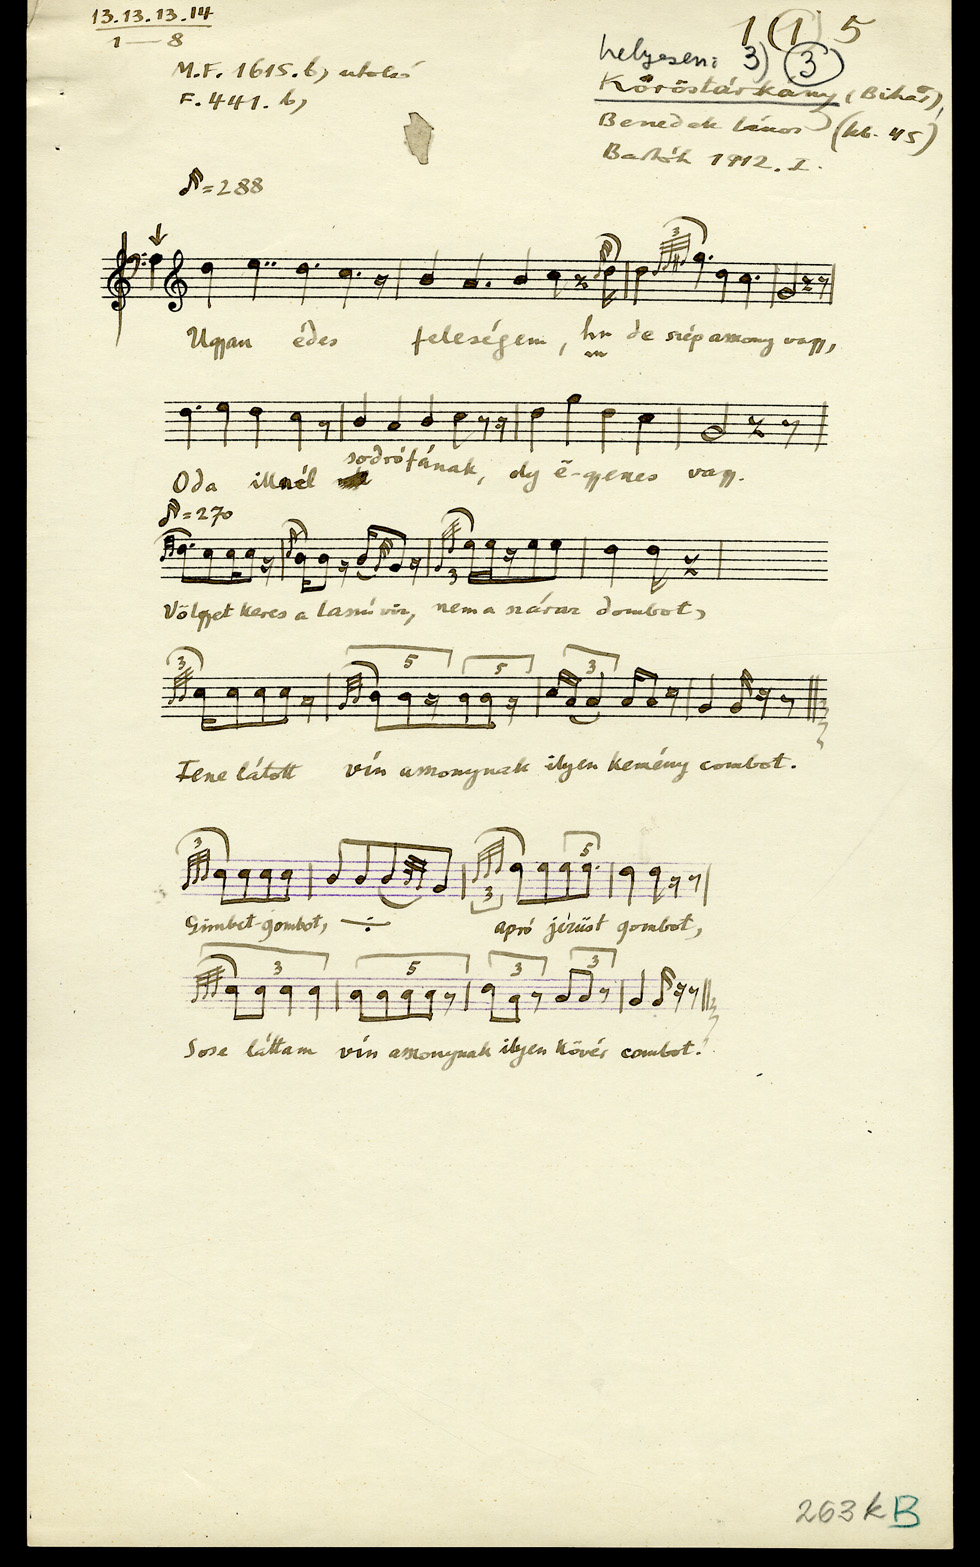 13.13.13.14
1 — 8
1 (1) 5
helyesen: 3) 3
M.F. 1615.b, utolsó
F. 441. b,
Köröstárkány (Bihar),
Benedek János (kb. 45)
Bartók 1912. I.
♪=288
3
Ugyan édes feleségem, hn de szép asszony vagy,
Oda illnél sodrófának, oly ë-gyenes vagy.
♪=270
3
Völgyet keres a lassú víz, nem a száraz dombot,
3 5 5 3
Fene látott vín asszonynak ilyen kemény combot.
3 3 5
Gimbet-gombot, ÷ apró jézüst gombot,
3 5 3 3
Sose láttam vín asszonynak ilyen kövér combot!
263 k B